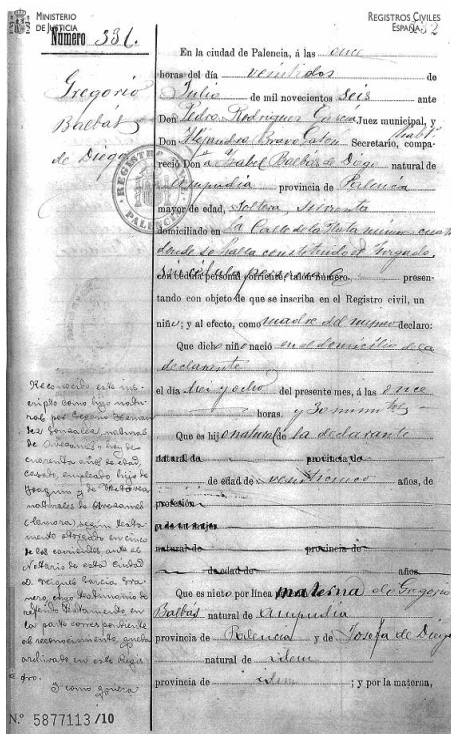 MINISTERIO
DE JUSTICIA
REGISTROS CIVILES
ESPAÑA
Número 331.
Gregorio
Balbás
de Diego
REGISTRO
PALENCIA
En la ciudad de Palencia, á las once
horas del día veintidos de
Julio de mil novecientos seis ante
Don Pedro Rodríguez García Juez municipal, y
Don Alejandro Bravo Secretario, compa-
reció Don a Isabel Balbás de Diego natural de
Ampudia provincia de Palencia
mayor de edad, soltera, sirvienta
domiciliado en la Calle de la número
donde se halla constituido el Juzgado,
con cédula personal corriente, talón número, presen-
tando con objeto de que se inscriba en el Registro civil, un
niño; y al efecto, como madre del mismo declaro:
Que dicho niño nació en el domicilio de la
declarante
el día diez y ocho del presente mes, á las once
horas. y 30 minutos
Que es hijo natural de la declarante
natural de provincia de
de edad de veinticinco años, de
profesión
natural de provincia de
de edad de años
Que es nieto por línea materna de Gregorio
Balbás natural de Ampudia
provincia de Palencia y de Josefa de Diego
natural de idem
provincia de idem ; y por la materna,
Reconocido este ins-
cripto como hijo natu-
ral por
dez Gonzalez, natural
de
cuarenta años de edad,
casado, empleado, hijo de
Joaquin y de
naturales de
(Zamora) según testa-
mento otorgado en cinco
de los corrientes ante el
Notario de esta ciudad
D. García
nero, cuyo testimonio de
referido testamento en
la parte correspondiente
al reconocimiento, queda
archivado en este Regis-
tro.
Y como
N.º 5877113 /10